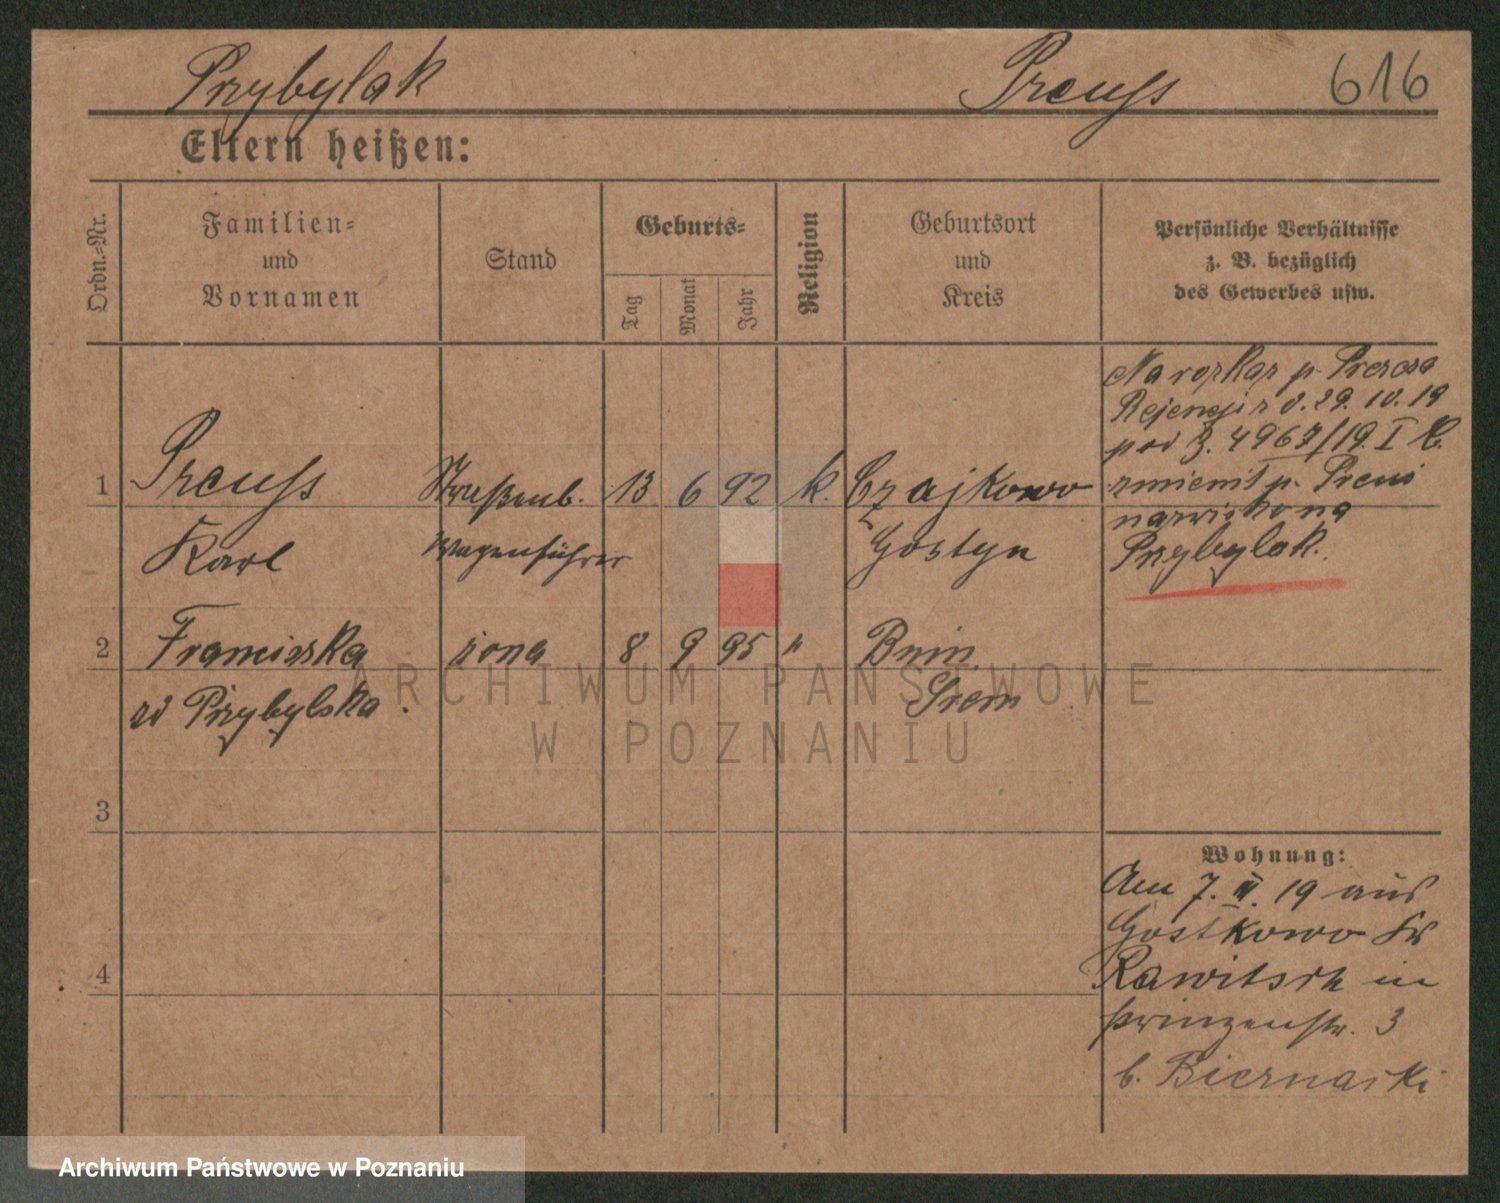 Przybylak Preuß 616
Eltern heißen:
Ordn.=Nr.
Familien=
und
Vornamen
Stand
Geburts=
Tag
Monat
Jahr
Religion
Geburtsort
und
Kreis
Persönliche Verhältnisse
z. B. bezüglich
des Gewerbes usw.
1 Preuß Straßenb. 13 6 92 k. Czajkowo
Karl Wagenführer Gostyn
2 Franciszka żona 8 9 95 " Bnin
zd Przybylska. Srem
3
4
Na rozkaz p. Prezesa
Rejencji z d. 29. 10. 19
pod §. 4967/19. I
zmienił p. Preuß
nazwisko na
Przybylak.
Wohnung:
Am 7. 19 aus
Gostkowo Kr
Rawitsch in
Prinzenstr. 3
b. Biernaski
ARCHIWUM PAŃSTWOWE
W POZNANIU
Archiwum Państwowe w Poznaniu